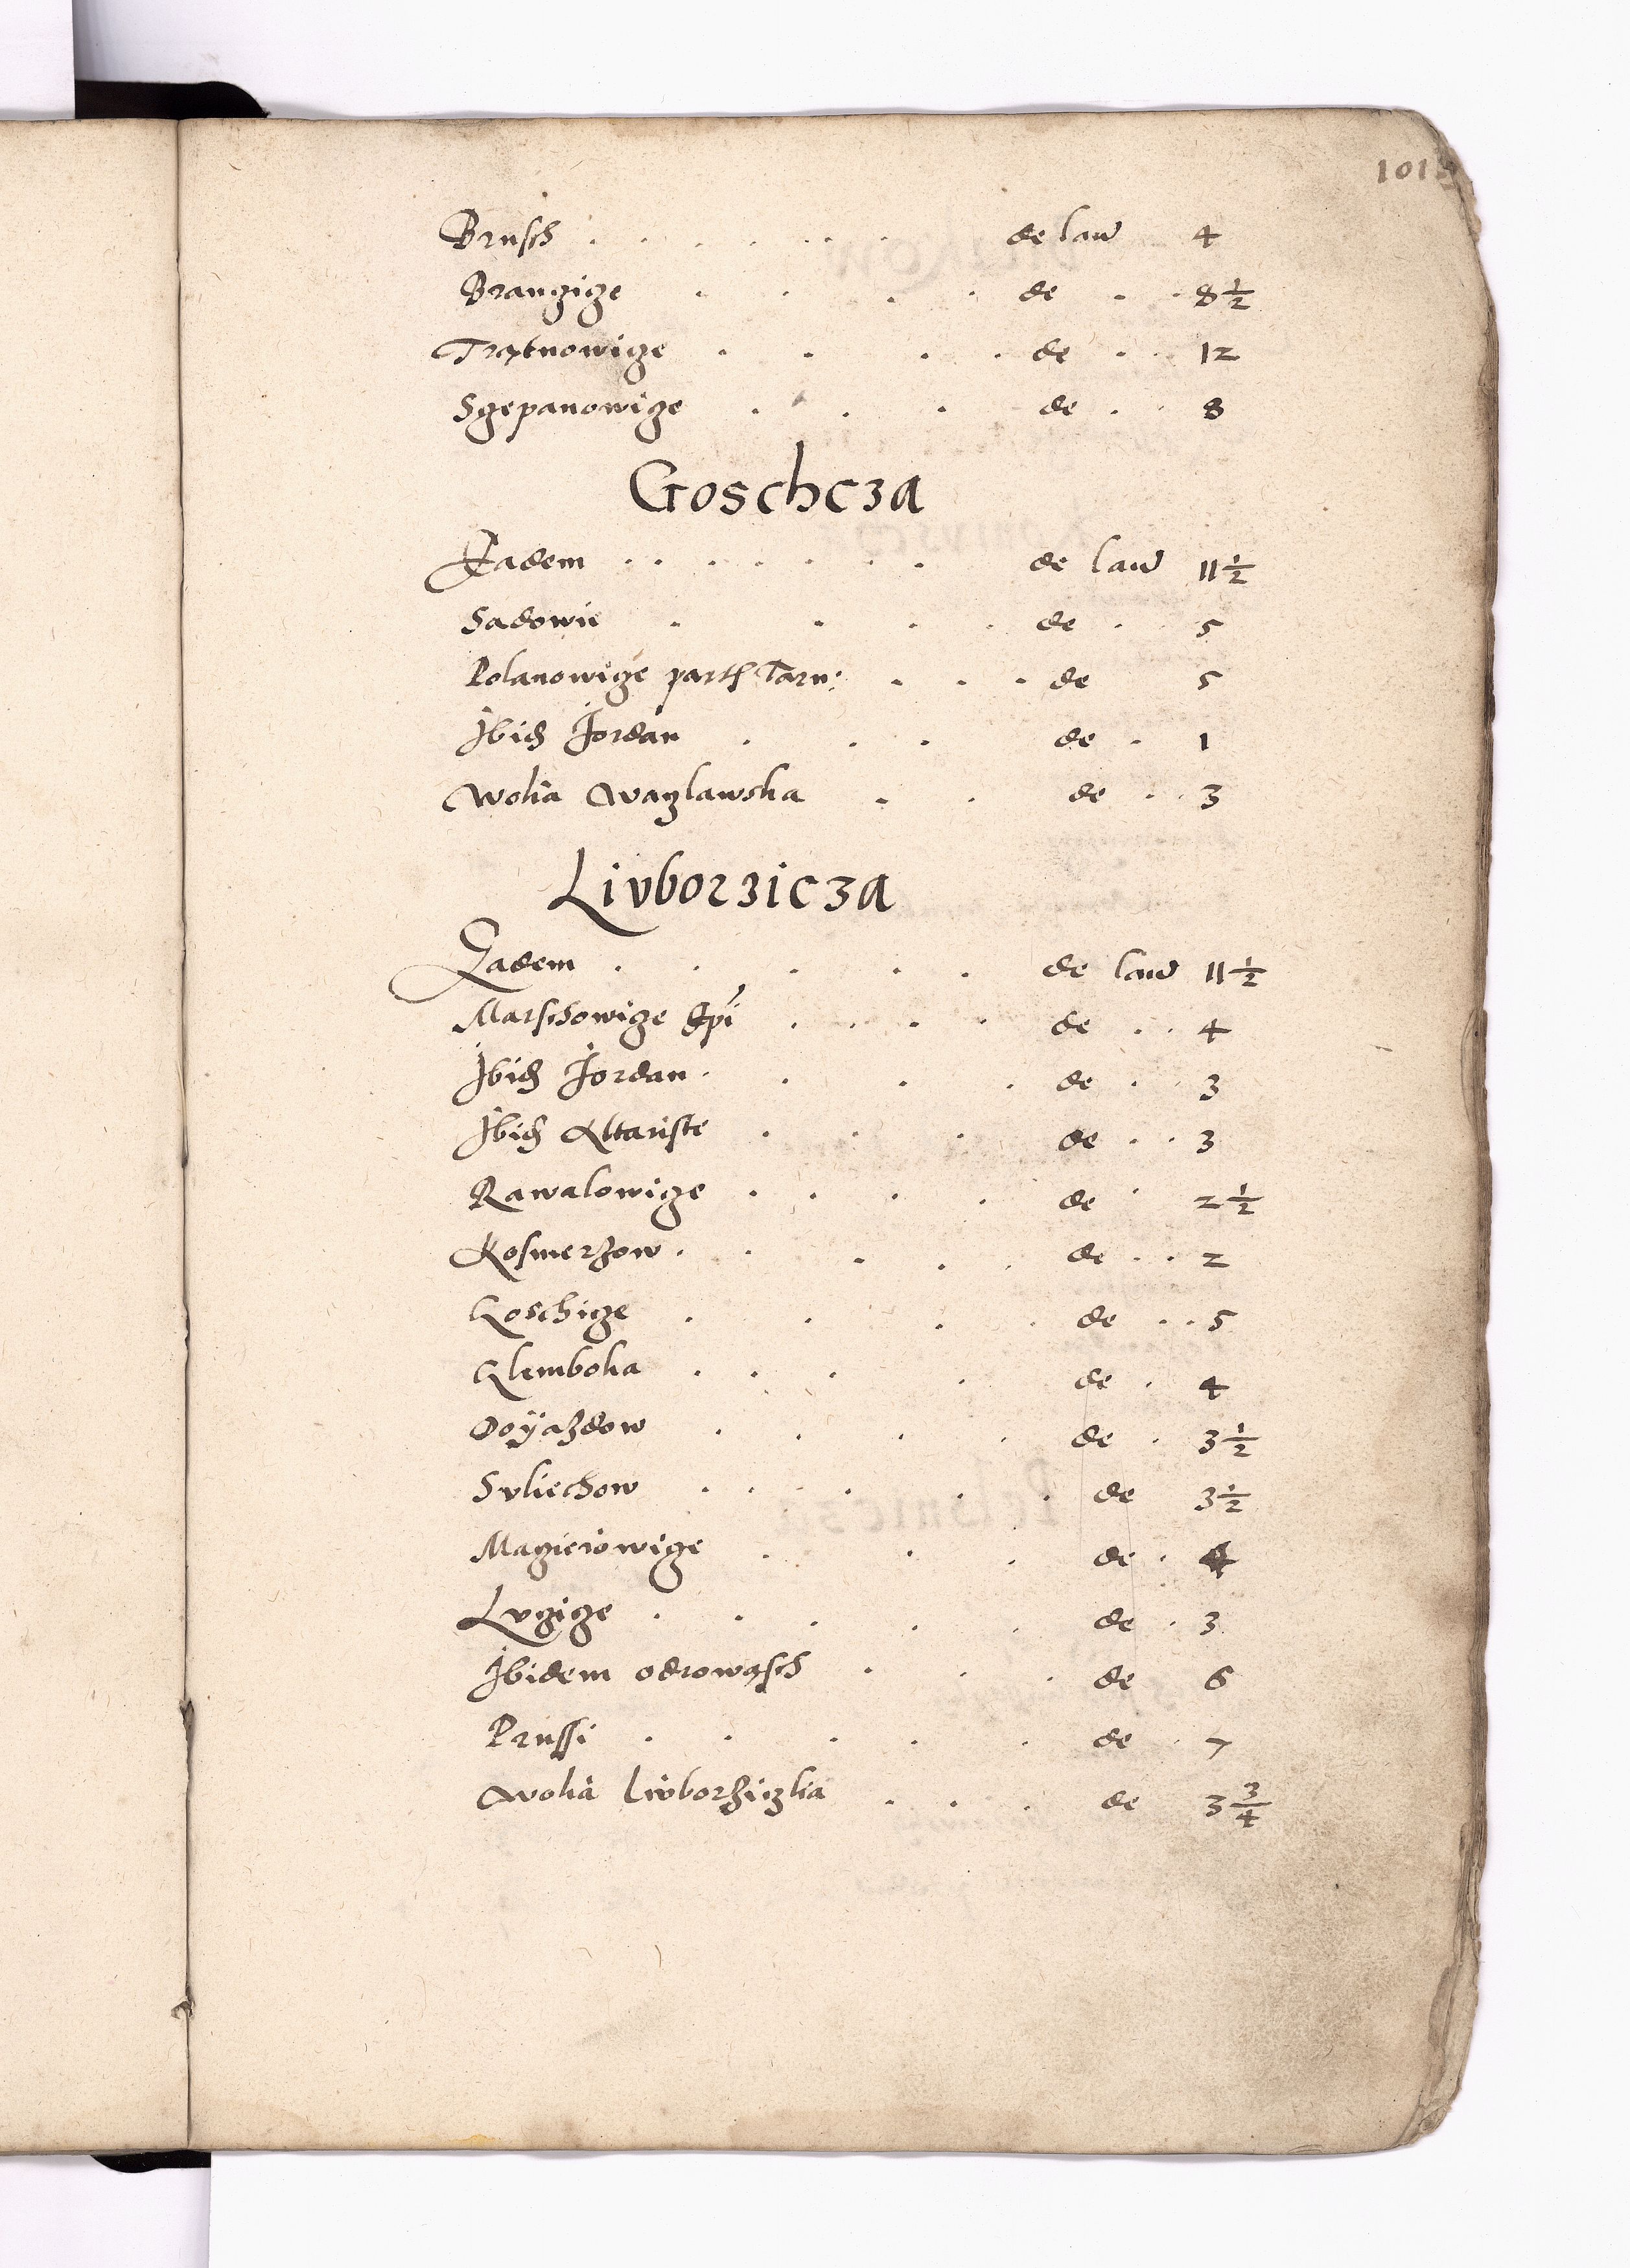 101
Brusch . . . . . . . de lan 4
Branzize . . . . de . . 8 1/2
Trątnowize . . . . de . . 12
Szepanowize . . . de . . 8
Goschcza
Eadem . . . . . . . de lan 11 1/2
Sadowie . . . . de . . 5
Polanowize parts Tarn: . . . de 5
Ibid Jordan . . . de . 1
Wolia Wazlawska . . de . . 3
Livborzicza
Eadem . . . . . de lan 11 1/2
Marschowize Epi . . . . de . . 4
Ibid Jordan . . . . de . . 3
Ibid Altariste . . . de . . 3
Rawalowize . . . . de . 2 1/2
Kosmerzow . . . . . de . . 2
Koschize . . . . de . . 5
Klemboka . . . . de . 4
Doÿazdow . . . . de . 3 1/2
Svliechow . . . . . . de 3 1/2
Mazieiowize . . . de . 4
Lvzize . . . . . de . 3
Ibidem odrowąsch . . . de 6
Prussi . . . . . de . 7
Wolia Livborzizka . . . de 3 3/4